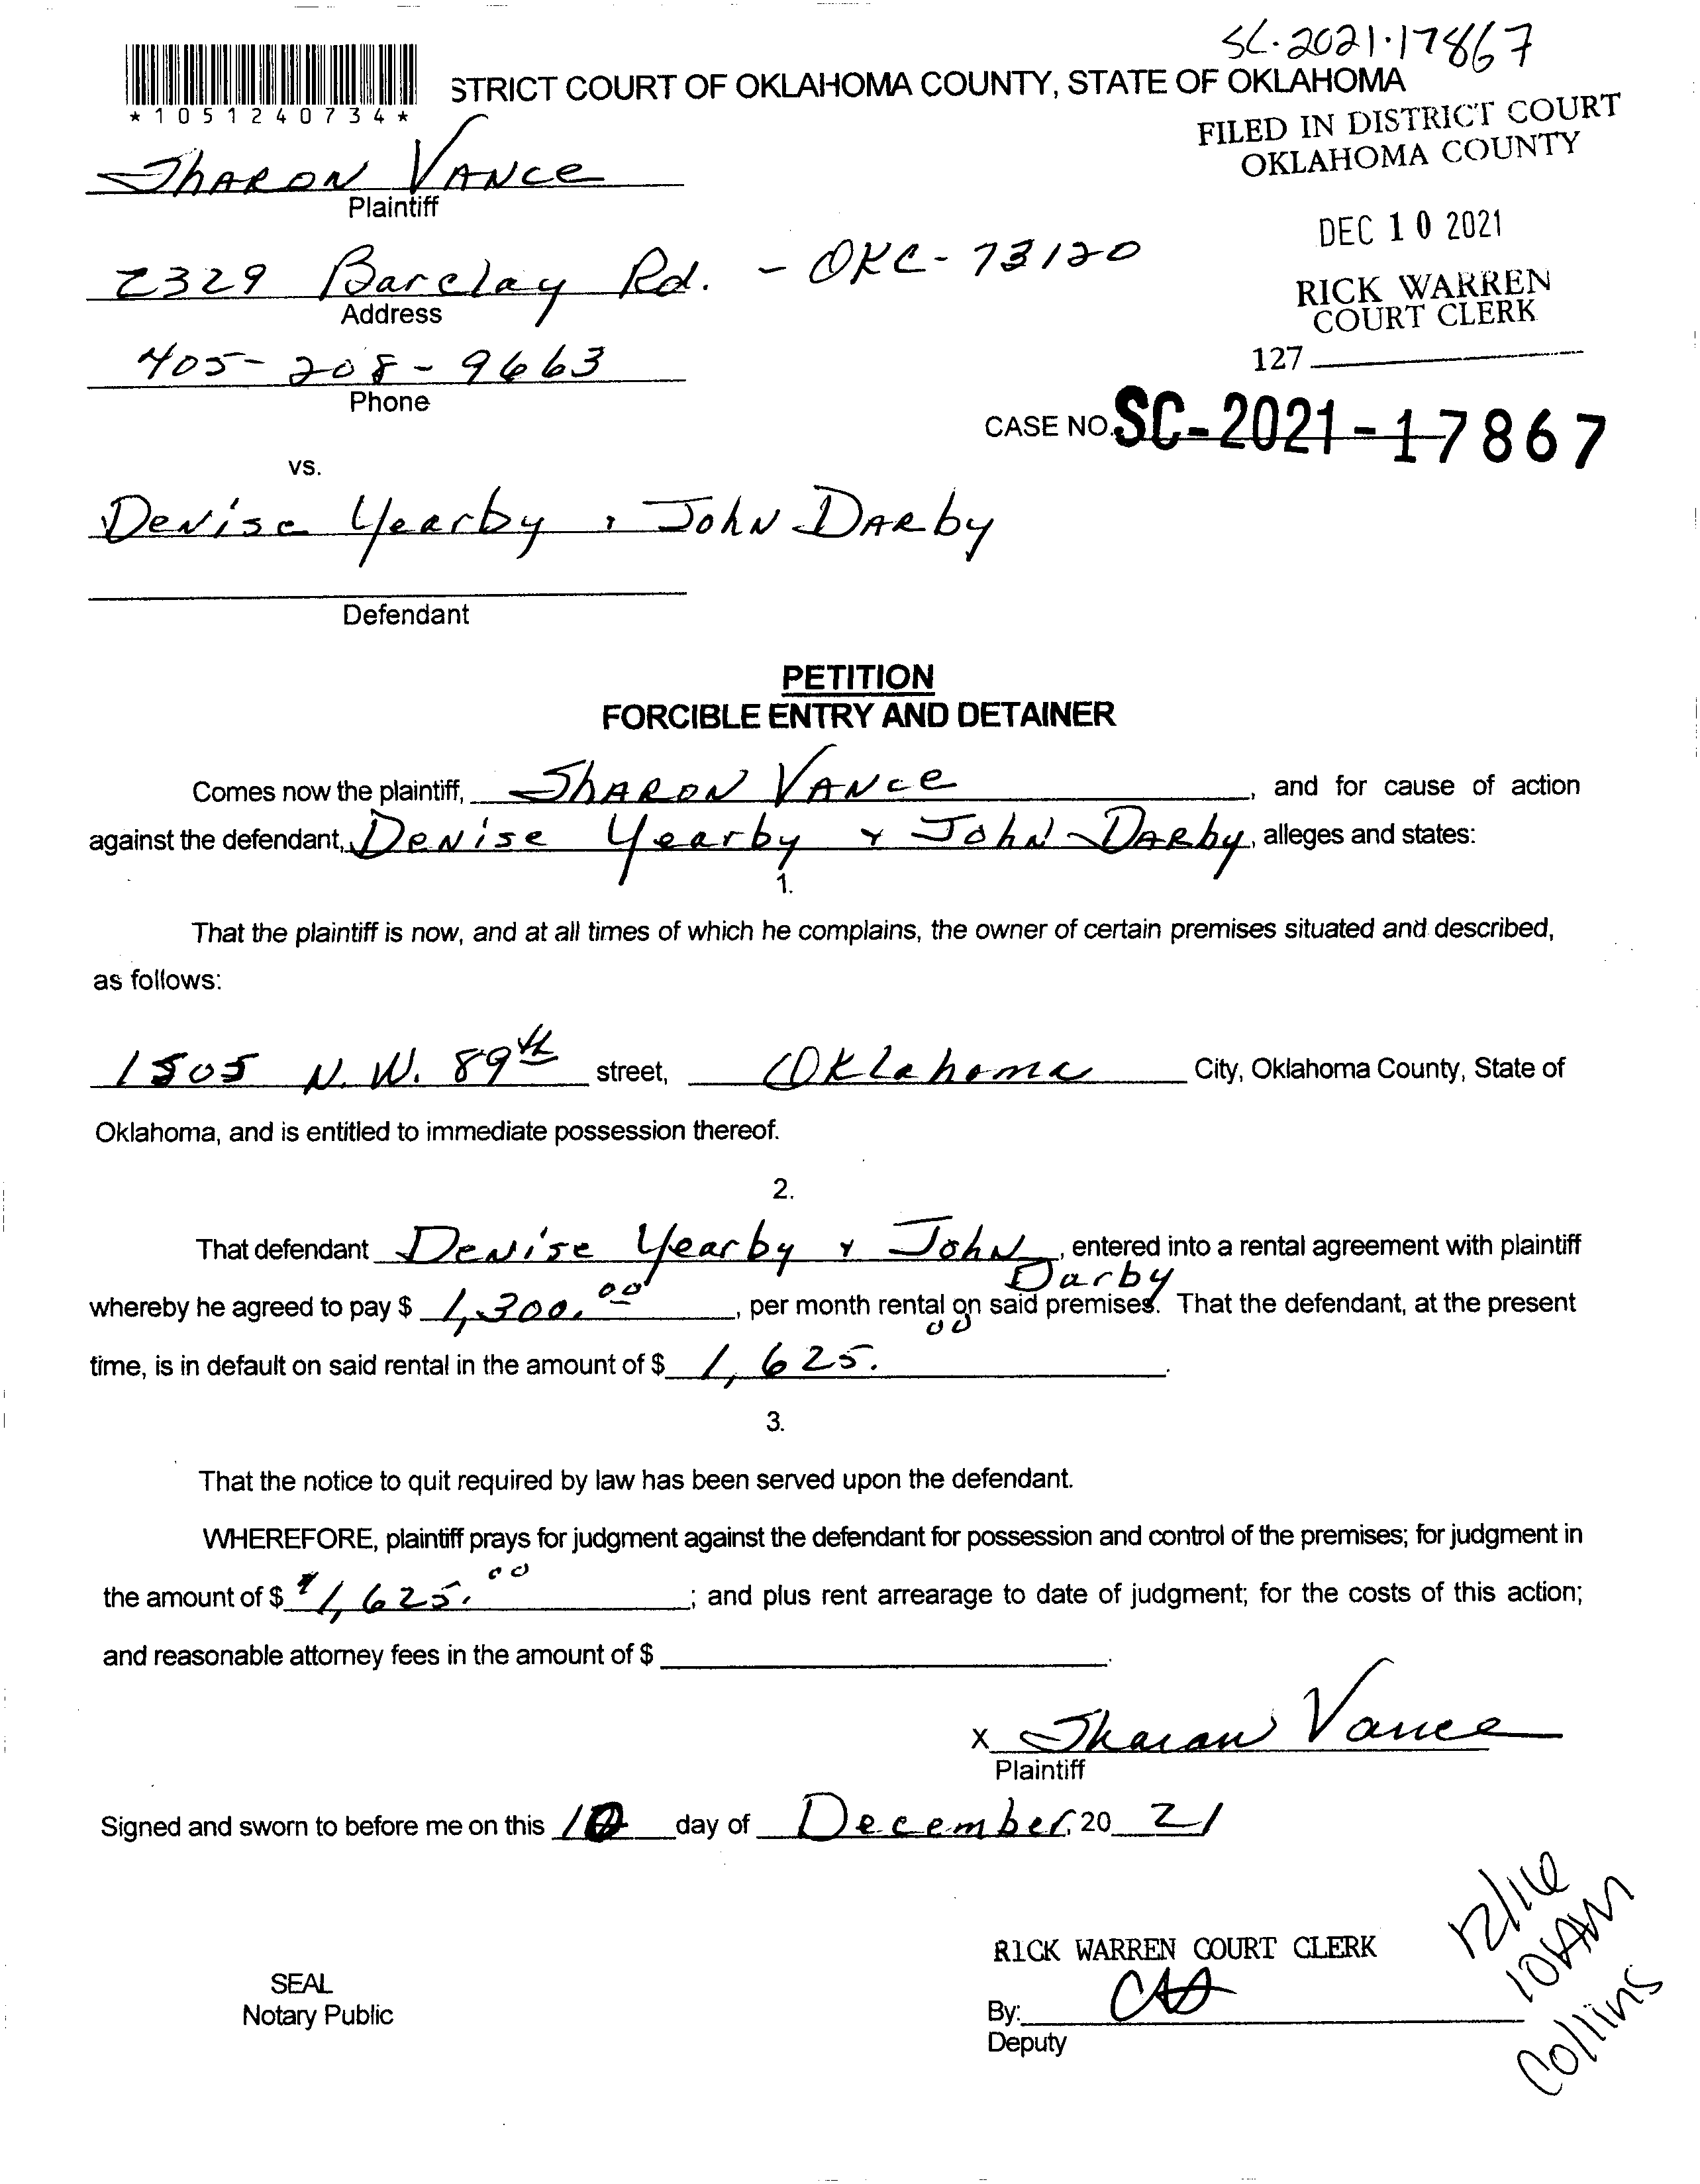 SC-2021-17867
STRICT COURT OF OKLAHOMA COUNTY, STATE OF OKLAHOMA
*1051240734*
FILED IN DISTRICT COURT
OKLAHOMA COUNTY
SHARON VANCE
Plaintiff
DEC 10 2021
2329 Barclay Rd. - OKC - 73120
Address
RICK WARREN
COURT CLERK
127
405-208-9663
Phone
CASE NO. SC-2021-17867
vs.
Denise Yearby , John Darby
Defendant
PETITION
FORCIBLE ENTRY AND DETAINER
Comes now the plaintiff, Sharon Vance, and for cause of action
against the defendant, Denise Yearby & John Darby, alleges and states:
1.
That the plaintiff is now, and at all times of which he complains, the owner of certain premises situated and described,
as follows:
1505 N.W. 89th street, Oklahoma City, Oklahoma County, State of
Oklahoma, and is entitled to immediate possession thereof.
2.
That defendant Denise Yearby & John Darby, entered into a rental agreement with plaintiff
whereby he agreed to pay $ 1,300.00, per month rental on said premises. That the defendant, at the present
time, is in default on said rental in the amount of $ 1,625.00.
3.
That the notice to quit required by law has been served upon the defendant.
WHEREFORE, plaintiff prays for judgment against the defendant for possession and control of the premises; for judgment in
the amount of $ 1,625.00; and plus rent arrearage to date of judgment; for the costs of this action;
and reasonable attorney fees in the amount of $
X Sharon Vance
Plaintiff
Signed and sworn to before me on this 10 day of December, 20 21
12/16
10AM
Collins
RICK WARREN COURT CLERK
SEAL
Notary Public
By:
Deputy